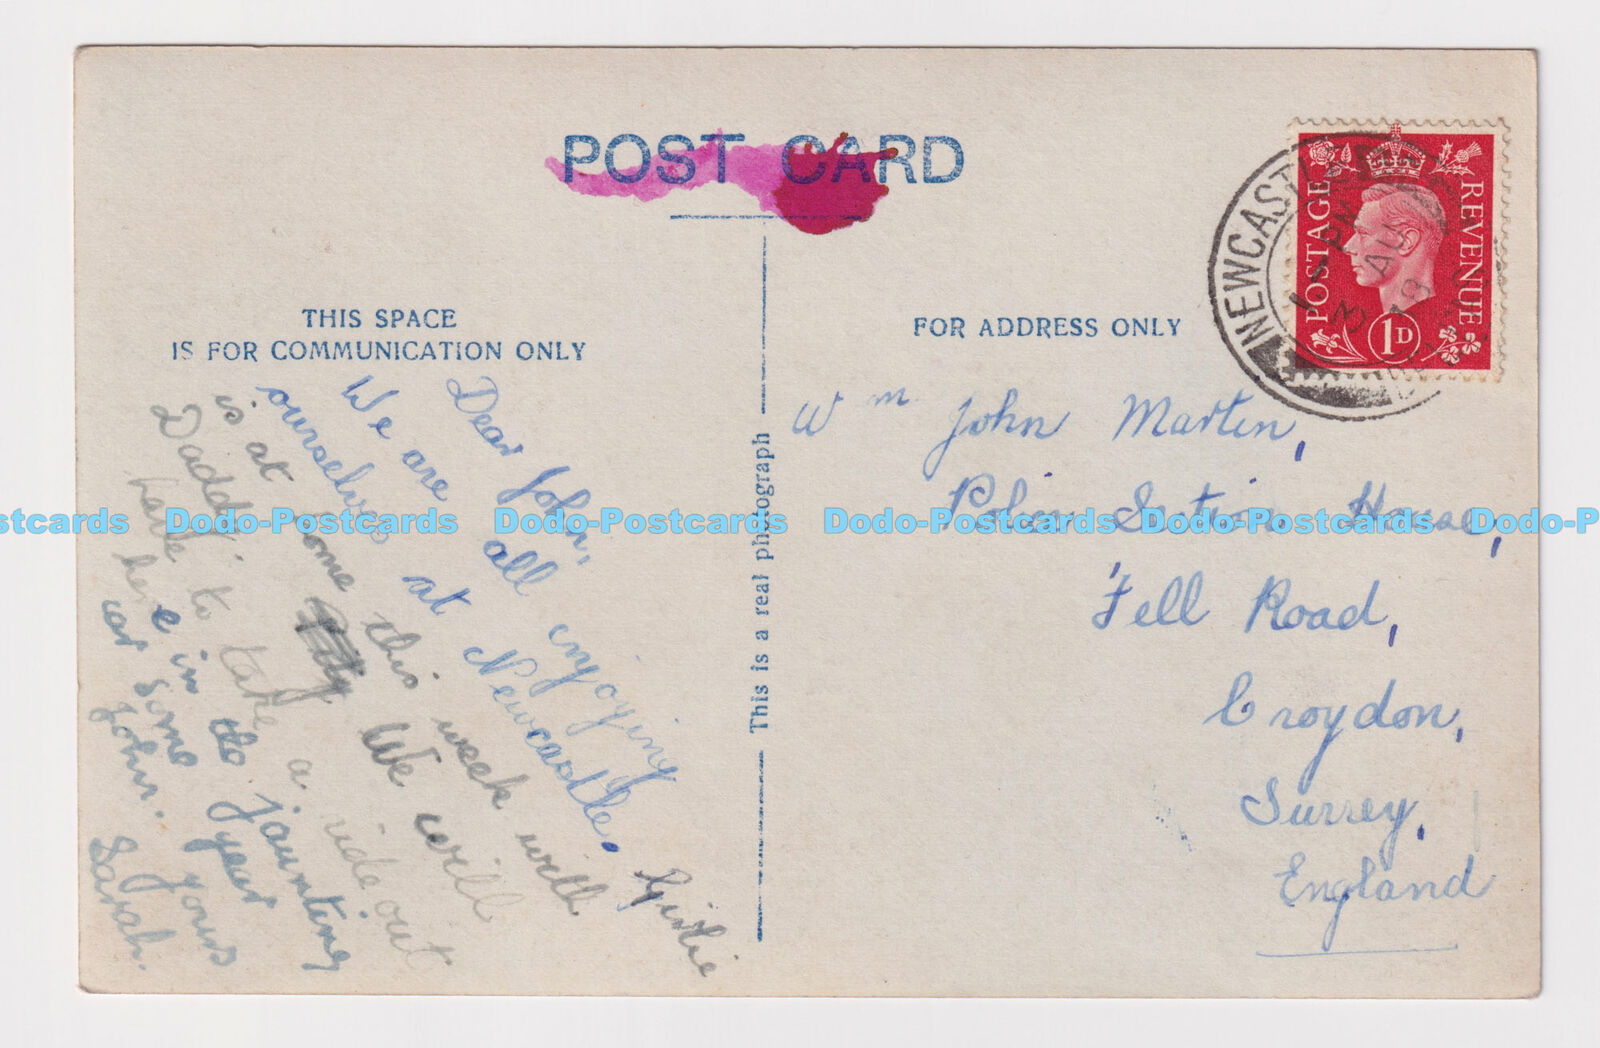 POST CARD
THIS SPACE
IS FOR COMMUNICATION ONLY
FOR ADDRESS ONLY
This is a real photograph
NEWCASTLE
1 - PM
3 AU
39
POSTAGE
REVENUE
1D
Dear John,
We are all enjoying
ourselves at Newcastle. Girlie
is at home this week with
Daddy. We will
have to take a ride out
here in the jaunting
car some year
John. yours
Sarah.
Wm John Martin,
Police Section House,
Fell Road,
Croydon,
Surrey,
England
Dodo-Postcards Dodo-Postcards Dodo-Postcards Dodo-Postcards Dodo-Postcards